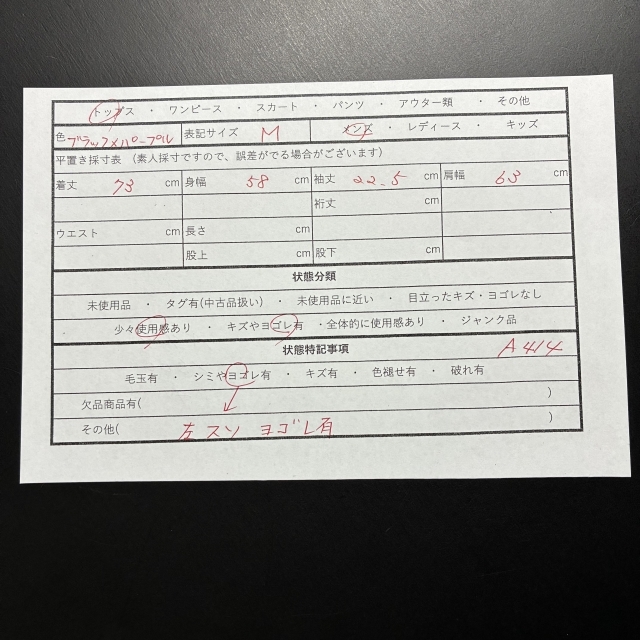 トップス ・ ワンピース ・ スカート ・ パンツ ・ アウター類 ・ その他
色 ブラック×パープル 表記サイズ M メンズ ・ レディース ・ キッズ
平置き採寸表 (素人採寸ですので、誤差がでる場合がございます)
着丈 73 cm 身幅 58 cm 袖丈 22.5 cm 肩幅 63 cm
裄丈 cm
ウエスト cm 長さ cm
股上 cm 股下 cm
状態分類
未使用品 ・ タグ有(中古品扱い) ・ 未使用品に近い ・ 目立ったキズ・ヨゴレなし
少々使用感あり ・ キズやヨゴレ有 ・全体的に使用感あり ・ ジャンク品
状態特記事項 A414
毛玉有 ・ シミやヨゴレ有 ・ キズ有 ・ 色褪せ有 ・ 破れ有
欠品商品有( )
その他( 左スソ ヨゴレ有 )